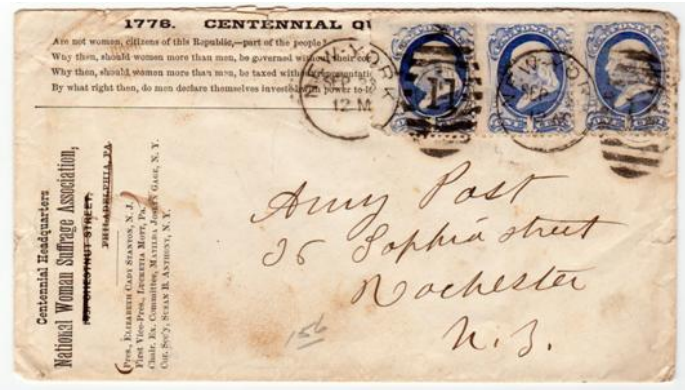 1776. CENTENNIAL QU
Are not women, citizens of this Republic,—part of the people?
Why then, should women more than men, be governed without their con
Why then, should women more than men, be taxed without representati
By what right then, do men declare themselves invested with power to le
NEW-YORK
12 M
11
NEW-YORK
SEP
Amy Post
36 Sophia street
Rochester
N. Y.
156
Centennial Headquarters
National Woman Suffrage Association,
CHESTNUT STREET,
PHILADELPHIA, PA.
Pres., ELIZABETH CADY STANTON, N. J.
First Vice-Pres., LUCRETIA MOTT, Pa.
Chair. Ex. Committee, MATILDA JOSLYN GAGE, N. Y.
Cor. Sec'y, SUSAN B. ANTHONY, N. Y.